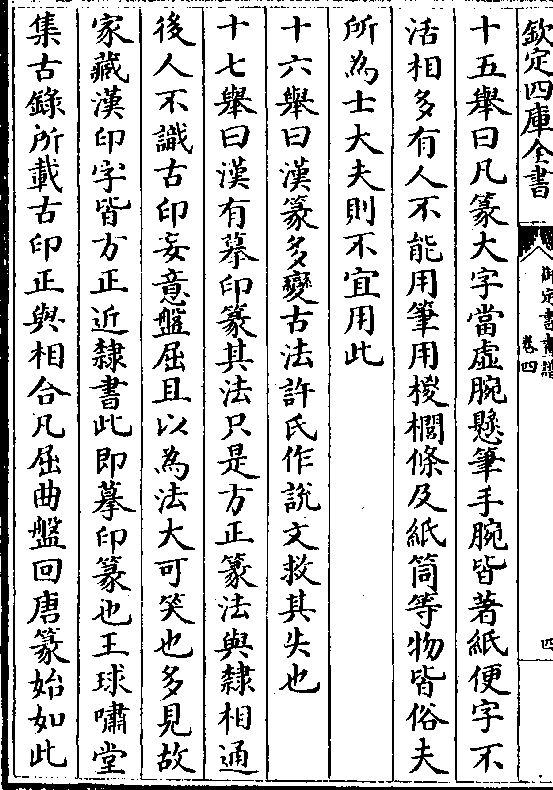 欽定四庫全書
御定書畫譜
卷四
四
十五舉曰凡篆大字當虚腕懸筆手腕皆著紙便字不
活相多有人不能用筆用椶櫚條及紙筒等物皆俗夫
所為士大夫則不宜用此
十六舉曰漢篆多變古法許氏作説文救其失也
十七舉曰漢有摹印篆其法只是方正篆法與隸相通
後人不識古印妄意盤屈且以為法大可笑也多見故
家藏漢印字皆方正近隸書此即摹印篆也王球嘯堂
集古錄所載古印正與相合凡屈曲盤回唐篆始如此